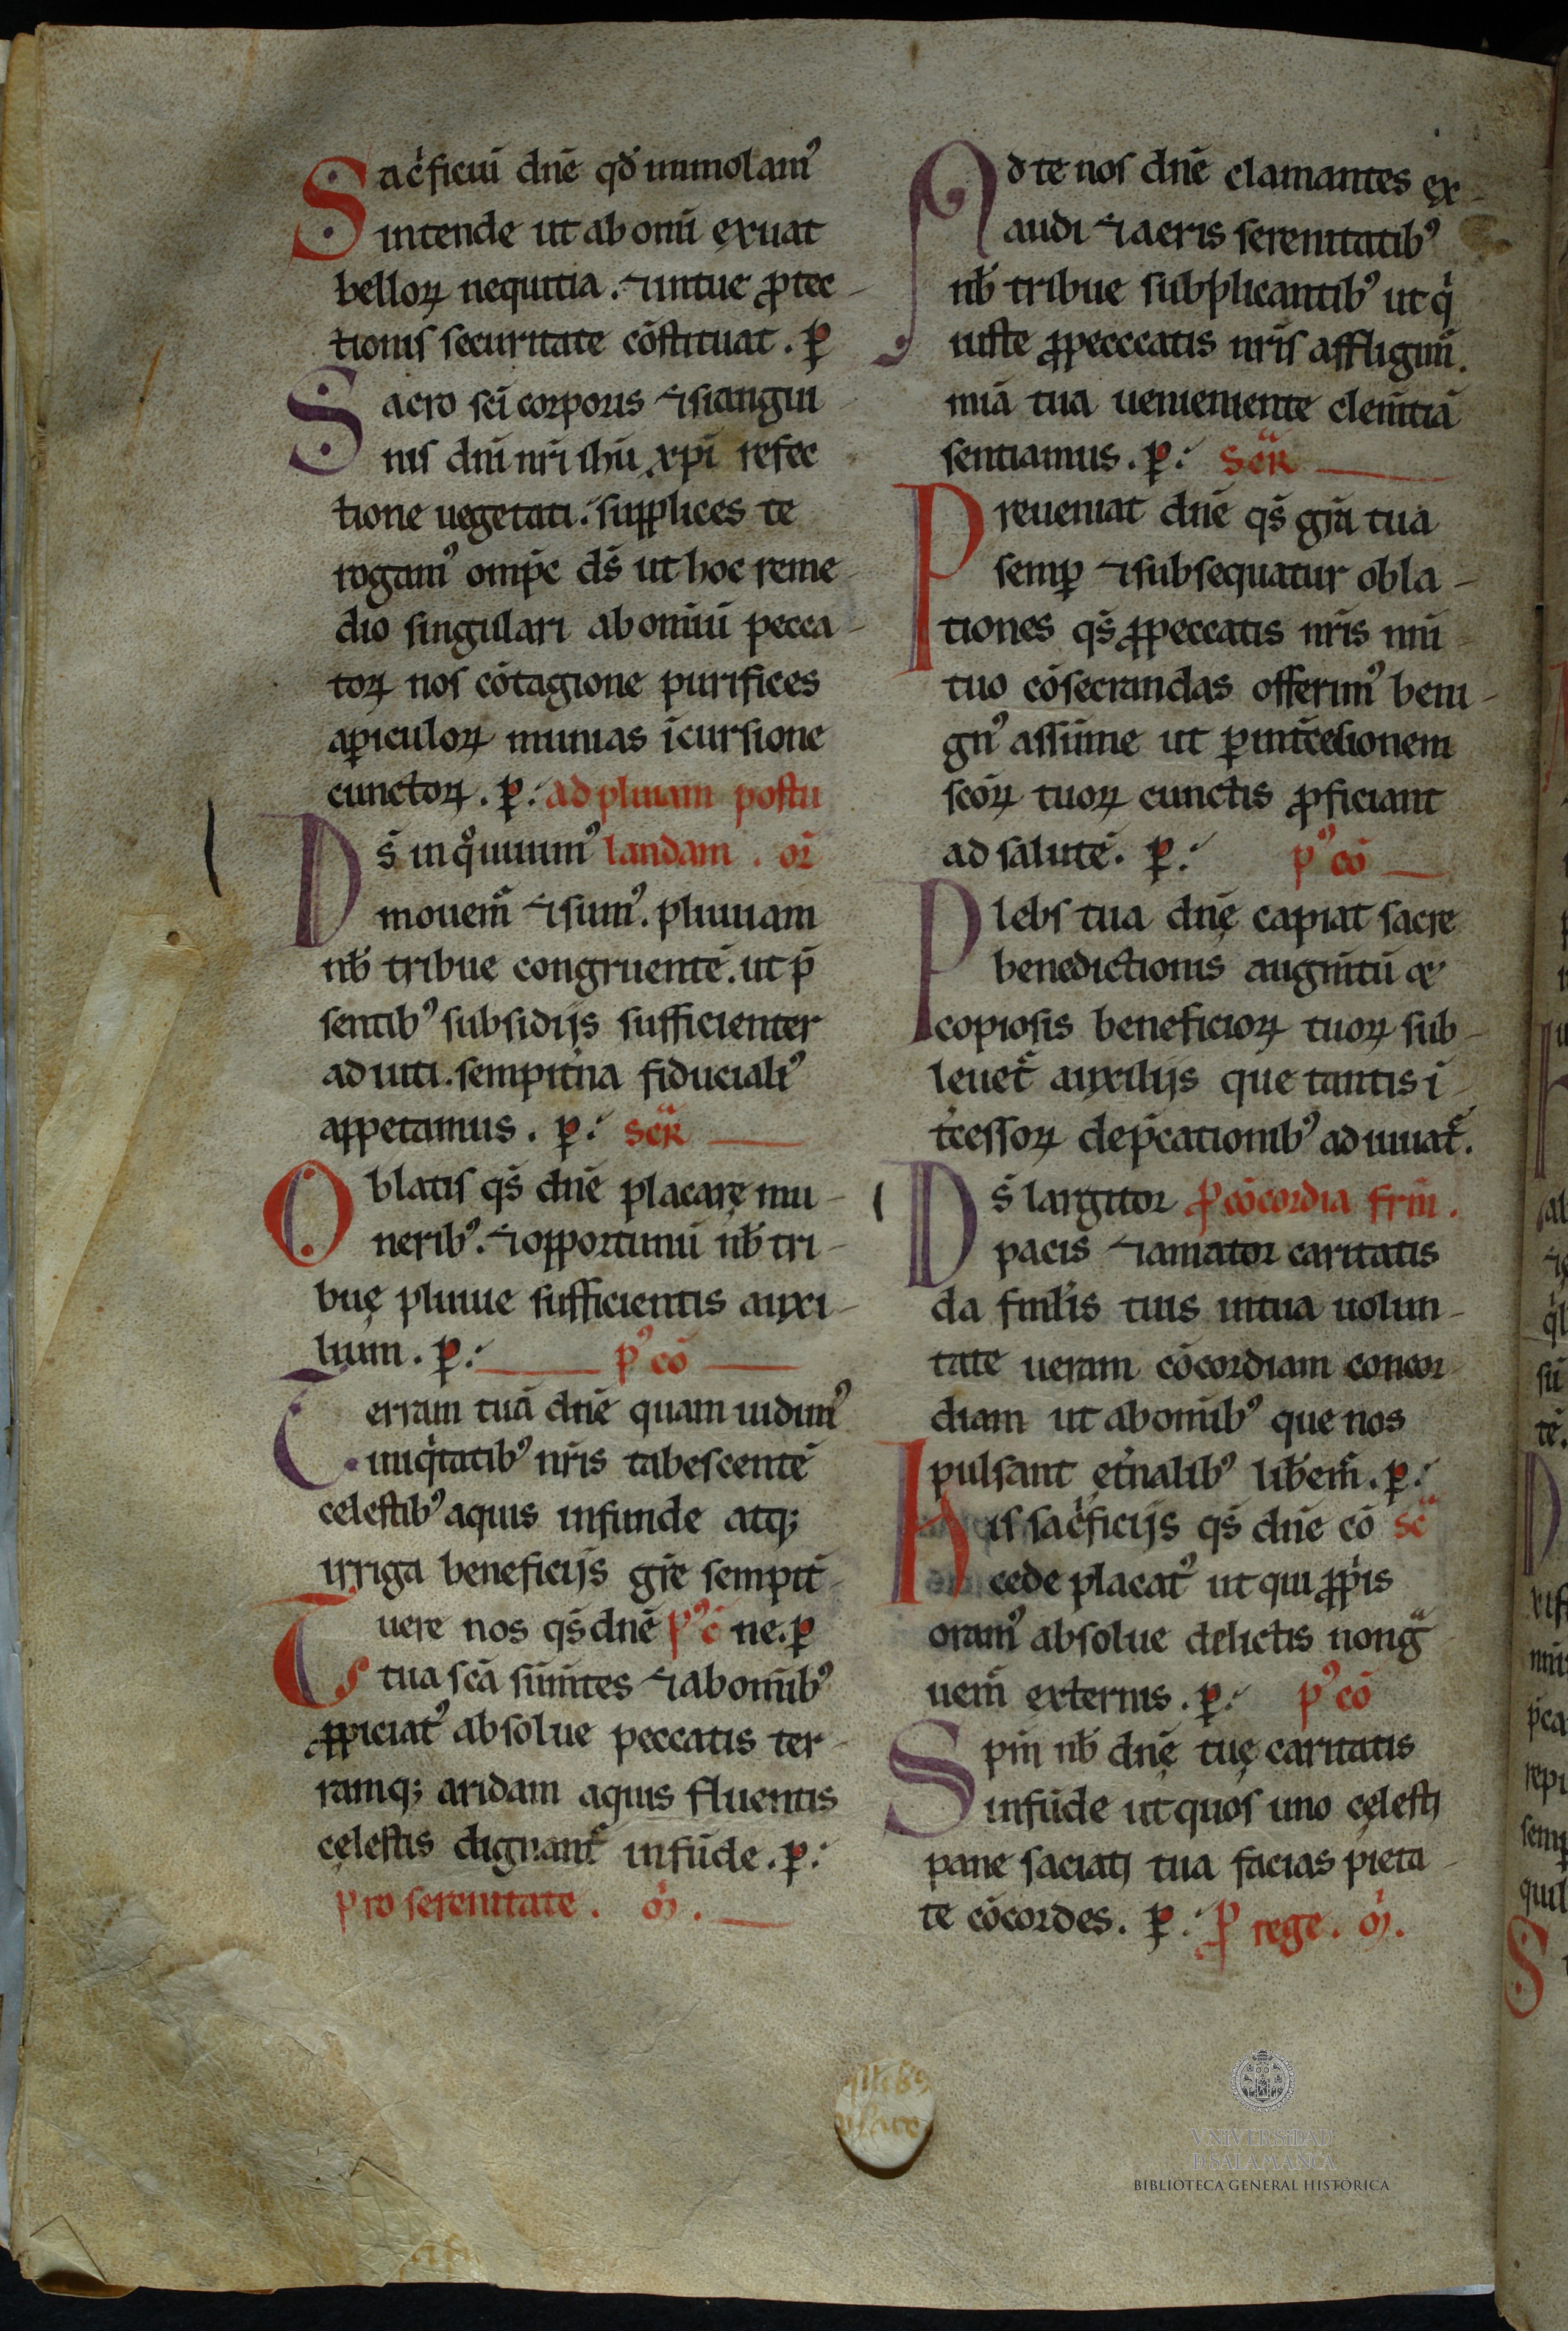 Sac̍ficiū dn̄e qd̄ immolam᾽
intende ut ab om̄i exuat
bellorꝝ nequitia. ⁊ in tue ꝓtec-
tionis securitate cōstituat. ꝑ
Sacro sc̄i corporis ⁊ sangui
nis dn̄i nr̄i ih̄u xp̄i refec
tione uegetati. suꝑplices te
rogam᾽ omp̄c ds̄ ut hoc reme-
dio singulari ab om̄iū pecca-
toꝝ nos cōtagione purifices
a ꝑiculoꝝ munias īcursione
cunctoꝝ. ꝑ: ad pluuiam postu
Ds̄ in qͦ uiuim᾽ landam. or̄
mouem̄ ⁊ sum᾽. pluuiam
nb̄ tribue congruentē. ut p̄
sentib᾽ subsidijs sufficienter
adiuti. sempit̍na fiduciali᾽
appetamus. ꝑ: Secr̄
Oblatis qs̄ dn̄e placare mu-
nerib᾽. ⁊ opportunū nb̄ tri-
buę pluuie sufficientis auxi-
lium. ꝑ: p᾽ cō
Terram tuā dn̄e quam uidim᾽
iniq̍tatib᾽ nr̄is tabescentē
celestib᾽ aquis infunde atq;
irriga beneficijs gr̄e sempit̄
Tuere nos qs̄ dn̄e p᾽ c̄ ne. ꝑ
tua sc̄a sūm̄tes ⁊ ab om̄ib᾽
ꝓpiciat᾽ absolue peccatis ter-
ramq; aridam aquis fluentis
cęlestis dignant᾽ infūde. ꝑ:
Pro serenitate. or̄.
Ad te nos dn̄e clamantes ex-
audi ⁊ aeris serenitatib᾽
nb̄ tribue subplicantib᾽ ut q̍
iuste ꝓ pecccatis nr̄is affligim̄.
mīa tua ueniemente clem̄tiā
sentiamus. ꝑ: Secr̄
Preueniat dn̄e qs̄ gr̄a tua
semꝑ ⁊ subsequatur obla-
tiones qs̄ ꝓ peccatis nr̄is nn̄i
tuo cōsecrandas offerim᾽ beni-
gn᾽ assume ut ꝑ int̄cessionem
sc̄oꝝ tuoꝝ cunctis ꝓficiant
ad salutē. ꝑ: p᾽ cō
Plebs tua dn̄ę capiat sacre
benedictionis augm̄tū ⁊
copiosis beneficioꝝ tuoꝝ sub-
leuet᾽ auxilijs que tantis ī-
t̄cessoꝝ dep̄cationib᾽ adiuuat᾽.
Ds̄ largitor ꝓ cōcordia fr̄m.
pacis ⁊ amator caritatis
da fml̄is tuis in tua uolun-
tate ueram cōcordiam concor
diam ut ab om̄ib᾽ que nos
pulsant et̍nalib᾽ lib̄em̄. ꝑ:
His sac̍ficijs qs̄ dn̄e cō sc̄
cede placat᾽ ut qui ꝓp̍is
oram᾽ absolue delictis non gͣ
uem̄ externis. ꝑ: p᾽ cō
Spm̄ nb̄ dn̄ę tuę caritatis
infūde ut quos uno cęlesti
pane saciati tua facias pieta-
te cōcordes. ꝑ: ꝓ rege. or̄.
VNIVERSIDAD
D SALAMANCA
BIBLIOTECA GENERAL HISTÓRICA